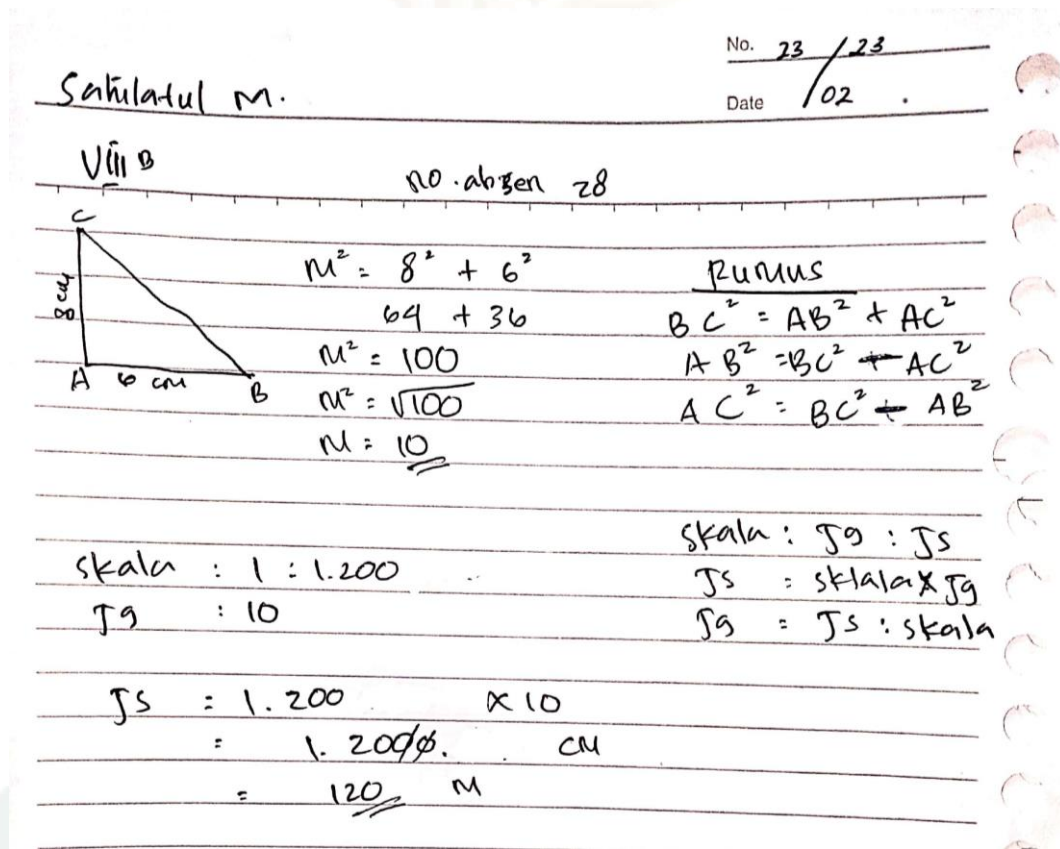 No. 23 / 23
Date 02 .
Sahilatul M.
VIII B
no. absen 28
C
8 cm
A 6 cm B
M² = 8² + 6²
64 + 36
M² = 100
M² = √100
M = 10
Rumus
BC² = AB² + AC²
AB² = BC² - AC²
AC² = BC² - AB²
skala : 1 : 1.200
Jg : 10
Skala : Jg : Js
Js = sklala x Jg
Jg = Js : skala
Js = 1.200 x 10
= 1.2000. cm
= 120 M